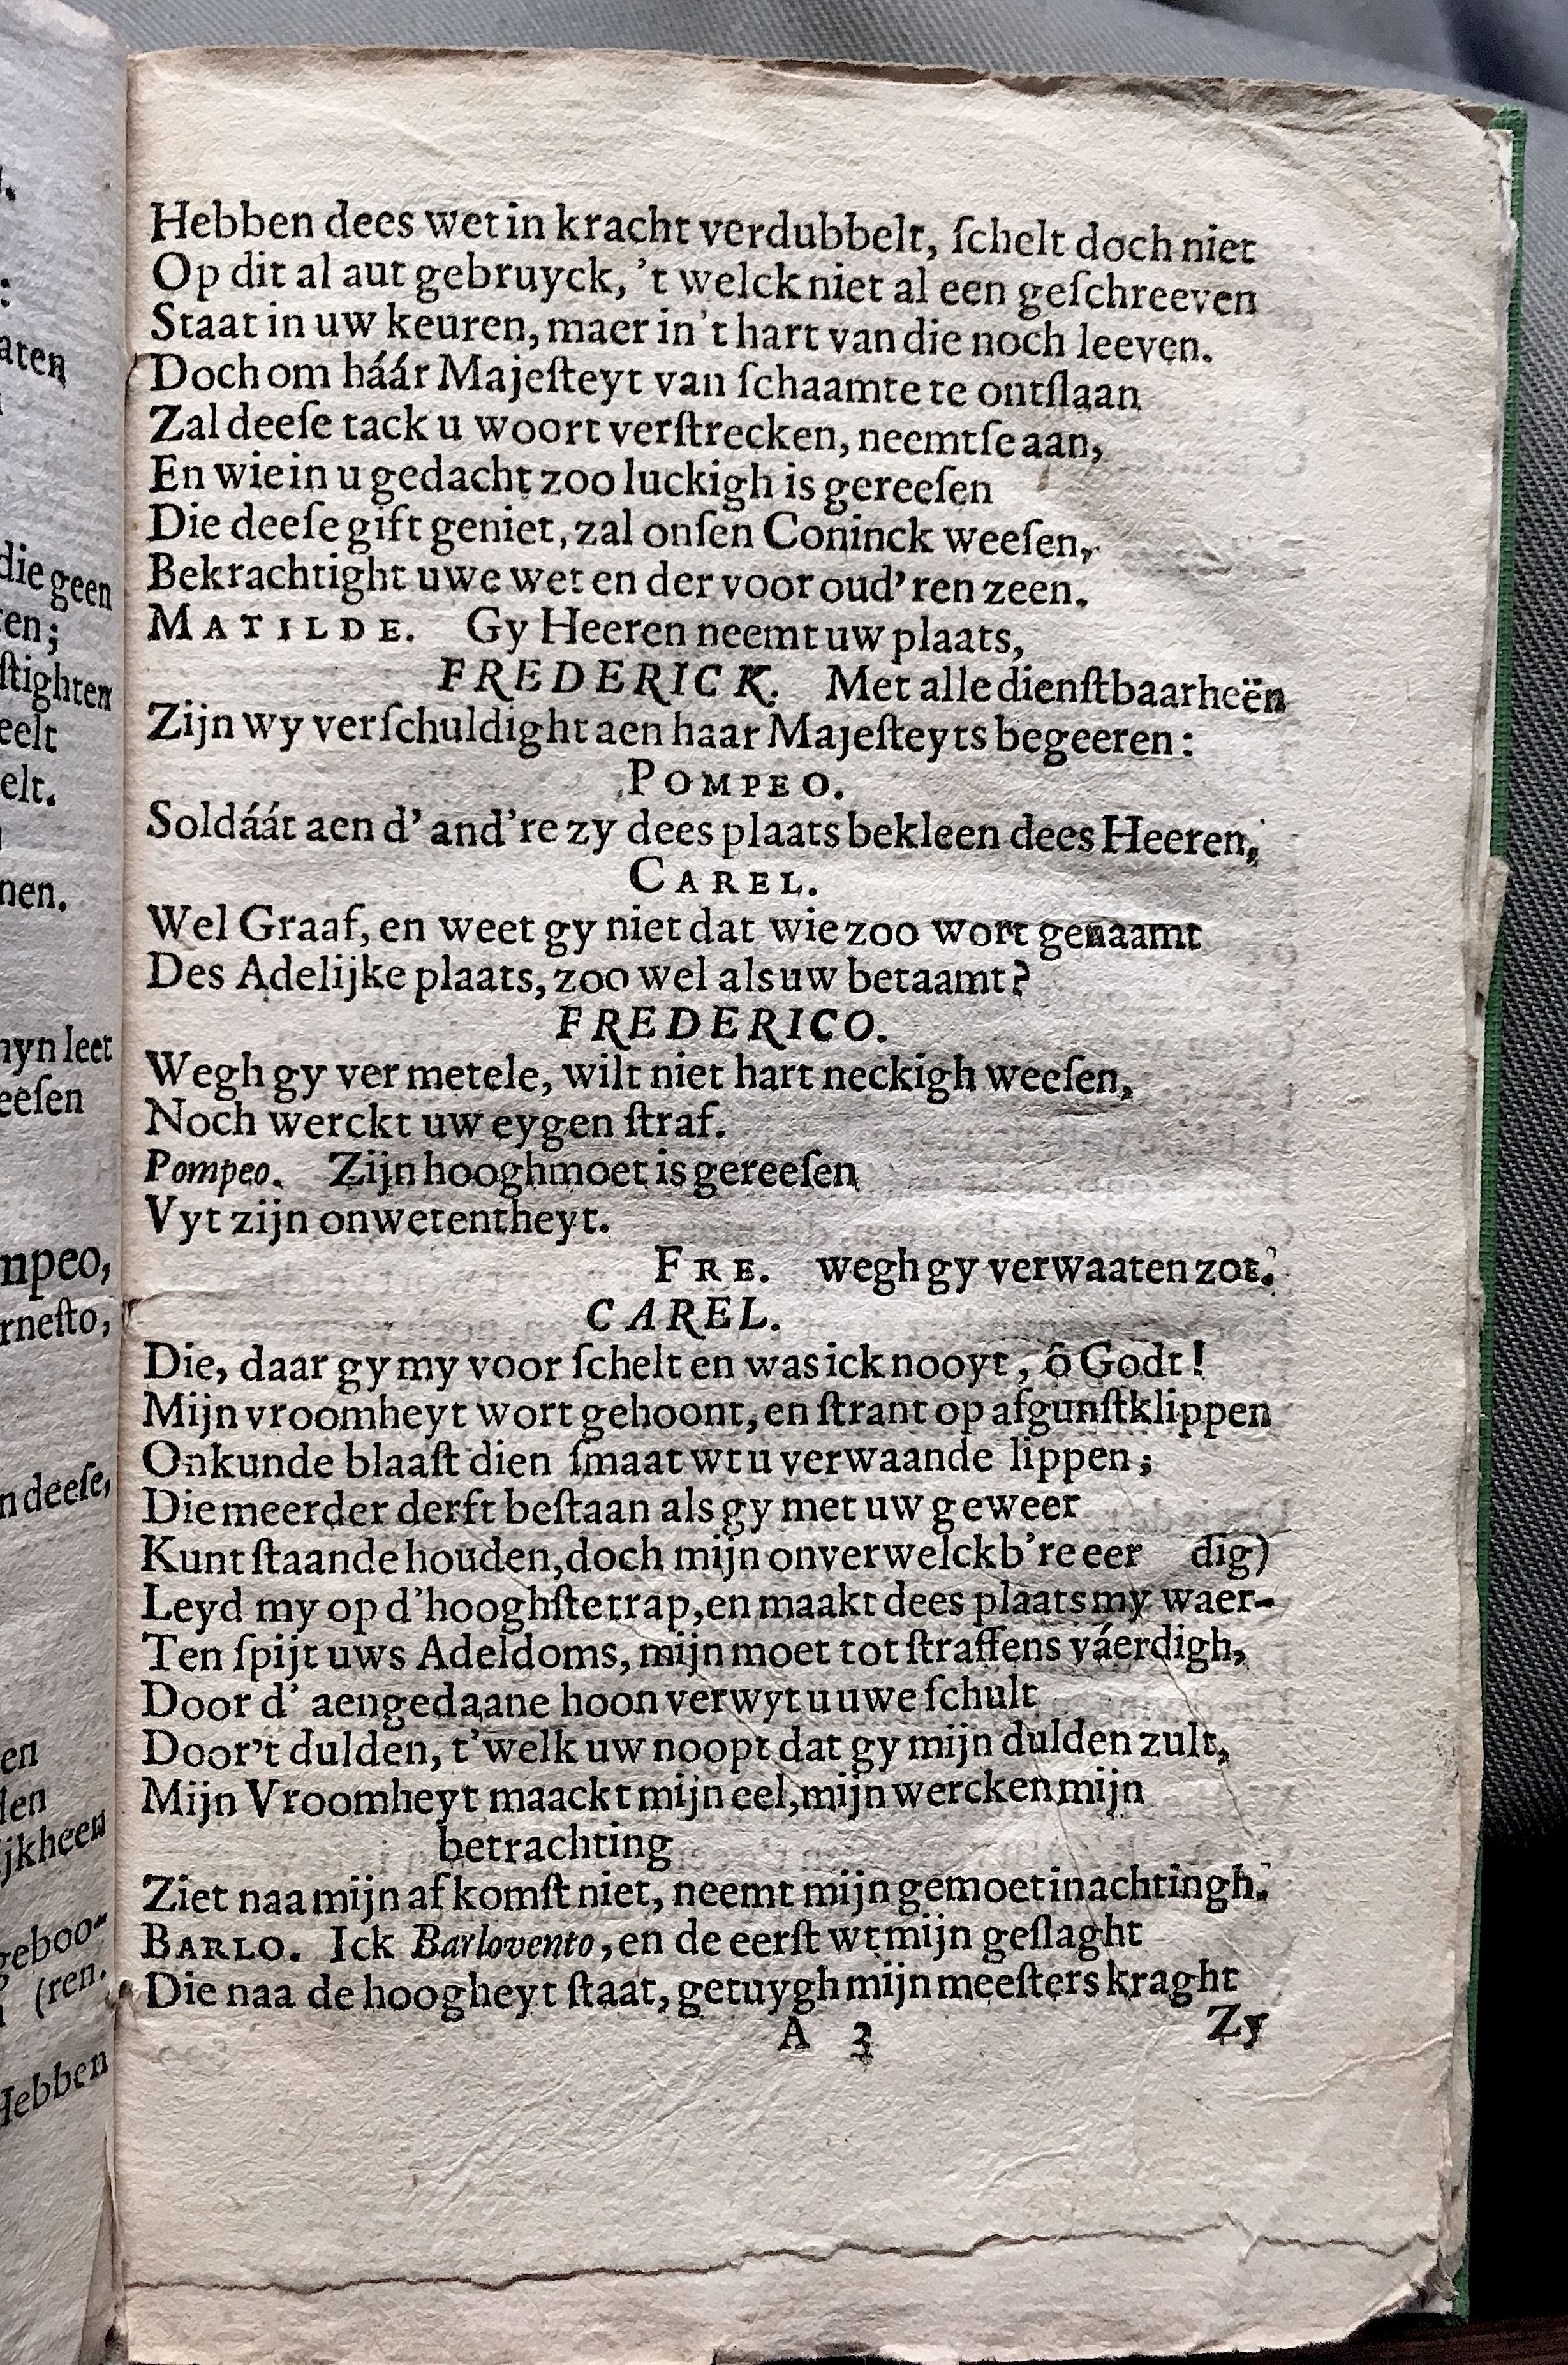 Hebben dees wet in kracht verdubbelt, ſchelt doch niet
Op dit al aut gebruyck, 't welck niet al een geſchreeven
Staat in uw keuren, maer in 't hart van die noch leeven.
Doch om háár Majeſteyt van ſchaamte te ontſlaan
Zal deeſe tack u woort verſtrecken, neemtſe aan,
En wie in u gedacht zoo luckigh is gereeſen
Die deeſe gift geniet, zal onſen Coninck weeſen,
Bekrachtight uwe wet en der voor oud'ren zeen.
MATILDE. Gy Heeren neemt uw plaats,
FREDERICK. Met alle dienſtbaarheën
Zijn wy verſchuldight aen haar Majeſteyts begeeren:
POMPEO.
Soldáát aen d' and're zy dees plaats bekleen dees Heeren,
CAREL.
Wel Graaf, en weet gy niet dat wie zoo wort genaamt
Des Adelijke plaats, zoo wel als uw betaamt?
FREDERICO.
Wegh gy vermetele, wilt niet hart neckigh weeſen,
Noch werckt uw eygen ſtraf.
Pompeo. Zijn hooghmoet is gereeſen
Vyt zijn onwetentheyt.
FRE. wegh gy verwaaten zot.
CAREL.
Die, daar gy my voor ſchelt en was ick nooyt, ô Godt!
Mijn vroomheyt wort gehoont, en ſtrant op afgunſtklippen
Onkunde blaaſt dien ſmaat wt u verwaande lippen;
Die meerder derft beſtaan als gy met uw geweer
Kunt ſtaande houden, doch mijn onverwelckb're eer dig)
Leyd my op d'hooghſte trap, en maakt dees plaats my waer-
Ten ſpijt uws Adeldoms, mijn moet tot ſtraffens váerdigh,
Door d' aengedaane hoon verwyt u uwe ſchult
Door't dulden, t'welk uw noopt dat gy mijn dulden zult,
Mijn Vroomheyt maackt mijn eel, mijn wercken mijn
betrachting
Ziet naa mijn af komſt niet, neemt mijn gemoet in achtingh.
BARLO. Ick Barlovento, en de eerſt wt mijn geſlaght
Die naa de hoogheyt ſtaat, getuygh mijn meeſters kraght
A 3 Zy